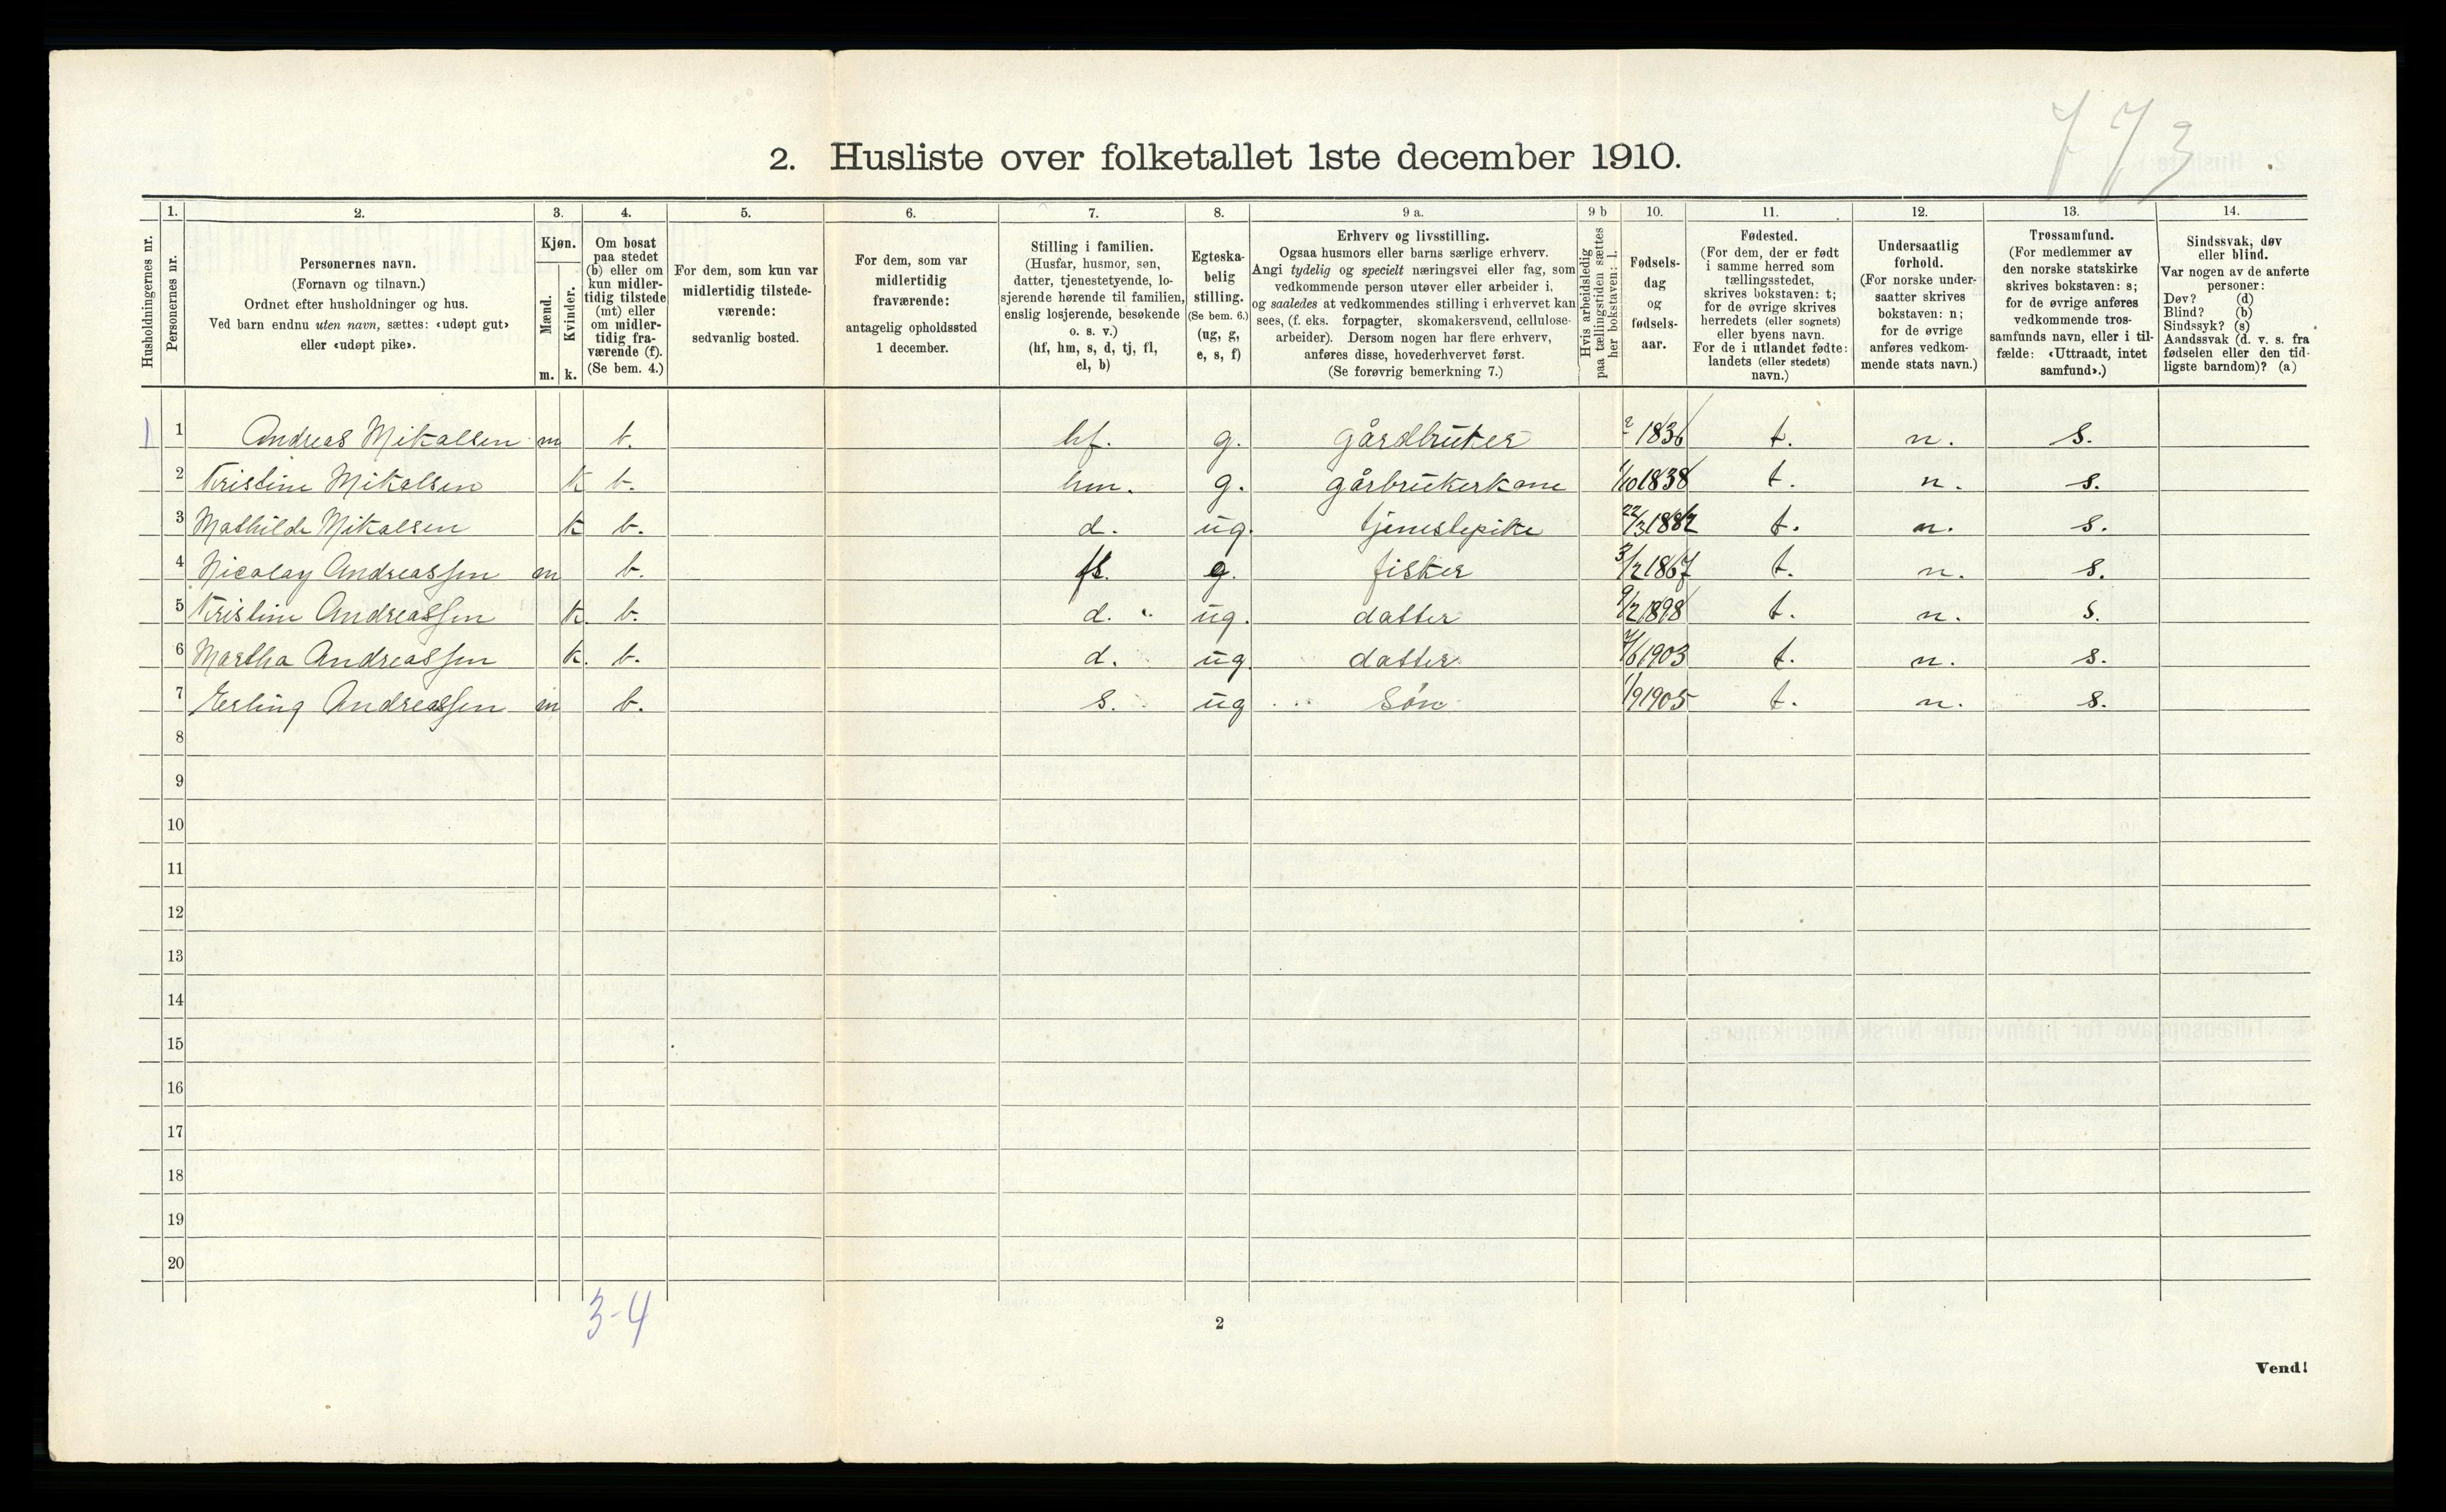 773
2. Husliste over folketallet 1ste december 1910.
Husholdningernes nr.
1.
Personernes nr.
2.
Personernes navn.
(Fornavn og tilnavn.)
Ordnet efter husholdninger og hus.
Ved barn endnu uten navn, sættes: «udøpt gut»
eller «udøpt pike».
3.
Kjøn.
Mænd.
Kvinder.
m. k.
4.
Om bosat
paa stedet
(b) eller om
kun midler-
tidig tilstede
(mt) eller
om midler-
tidig fra-
værende (f).
(Se bem. 4.)
5.
For dem, som kun var
midlertidig tilstede-
værende:
sedvanlig bosted.
6.
For dem, som var
midlertidig
fraværende:
antagelig opholdssted
1 december.
7.
Stilling i familien.
(Husfar, husmor, søn,
datter, tjenestetyende, lo-
sjerende hørende til familien,
enslig losjerende, besøkende
o. s. v.)
(hf, hm, s, d, tj, fl,
el, b)
8.
Egteska-
belig
stilling.
(Se bem. 6.)
(ug, g,
e, s, f)
9 a.
Erhverv og livsstilling.
Ogsaa husmors eller barns særlige erhverv.
Angi tydelig og specielt næringsvei eller fag, som
vedkommende person utøver eller arbeider i,
og saaledes at vedkommendes stilling i erhvervet kan
sees, (f. eks. forpagter, skomakersvend, cellulose-
arbeider). Dersom nogen har flere erhverv,
anføres disse, hovederhvervet først.
(Se forøvrig bemerkning 7.)
9 b
Hvis arbeidsledig
paa tællingstiden sættes
her bokstaven: l.
10.
Fødsels-
dag
og
fødsels-
aar.
11.
Fødested.
(For dem, der er født
i samme herred som
tællingsstedet,
skrives bokstaven: t;
for de øvrige skrives
herredets (eller sognets)
eller byens navn.
For de i utlandet fødte:
landets (eller stedets)
navn.)
12.
Undersaatlig
forhold.
(For norske under-
saatter skrives
bokstaven: n;
for de øvrige
anføres vedkom-
mende stats navn.)
13.
Trossamfund.
(For medlemmer av
den norske statskirke
skrives bokstaven: s;
for de øvrige anføres
vedkommende tros-
samfunds navn, eller i til-
fælde: «Uttraadt, intet
samfund».)
14.
Sindssvak, døv
eller blind.
Var nogen av de anførte
personer:
Døv? (d)
Blind? (b)
Sindssyk? (s)
Aandssvak (d. v. s. fra
fødselen eller den tid-
ligste barndom)? (a)
1 1 Andreas Mikalsen m b. hf. g. gårdbruker ? 1836 t. n. s.
2 Kristine Mikalsen k b. hm. g. gårbrukerkone 1/10 1838 t. n. s.
3 Mathilde Mikalsen k b. d. ug. tjenestepike 22/3 1882 t. n. s.
4 Nicolay Andreassen m b. fl. g. fisker 3/2 1867 t. n. s.
5 Kristine Andreassen k. b. d. ug. datter 9/2 1898 t. n. s.
6 Martha Andreassen k. b. d. ug. datter /6 1903 t. n. s.
7 Erling Andreassen m b. s. ug søn 1/9 1905 t. n. s.
8
9
10
11
12
13
14
15
16
17
18
19
20
3-4
2
Vend!